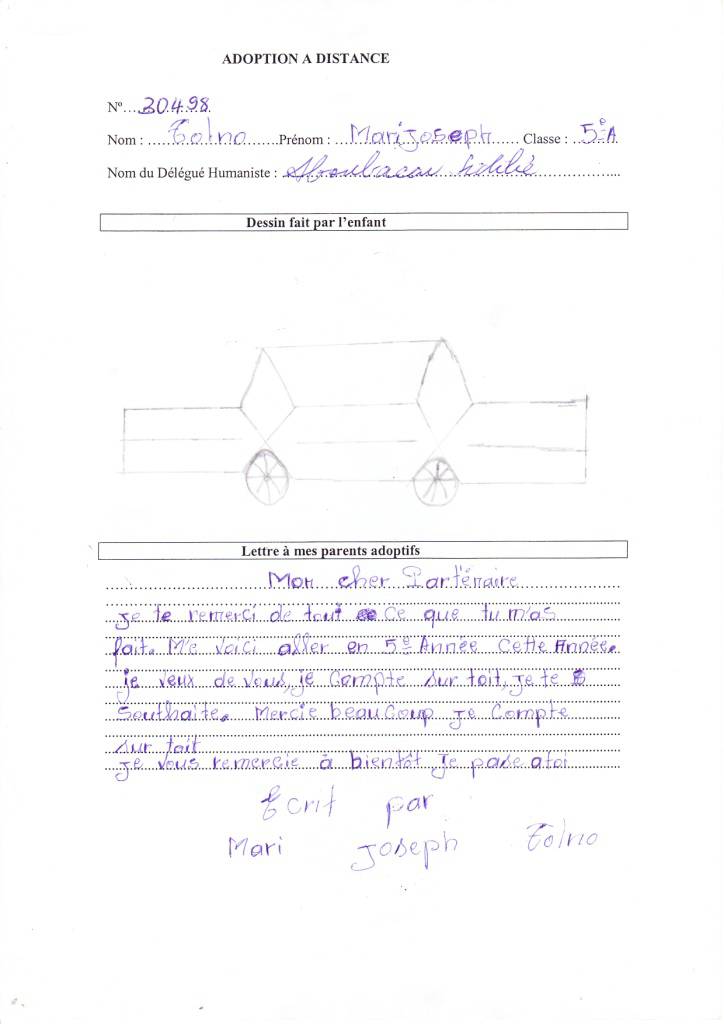 ADOPTION A DISTANCE
N°....30.4.98
Nom : Tolno Prénom : Marijoseph Classe : 5e A
Nom du Délégué Humaniste : Aboubacar
Dessin fait par l'enfant
Lettre à mes parents adoptifs
Mon cher Parténaire
je te remerci de tout ce que tu m'as
fait. Me voici aller en 5e Année cette Année.
je veux de vous, je compte sur toit, je te
Southaite. Mercie beaucoup je compte
sur toit
je vous remercie à bientôt je pade atoi
Ecrit par
Mari joseph Tolno